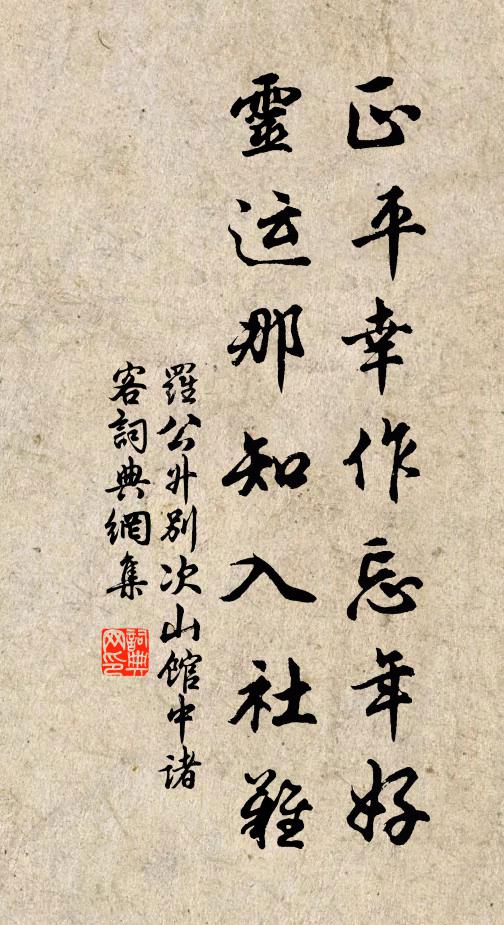 正平幸作忘年好
靈运那知入社難
羅公升別次山館中諸
客詞典網集
詞典
网印